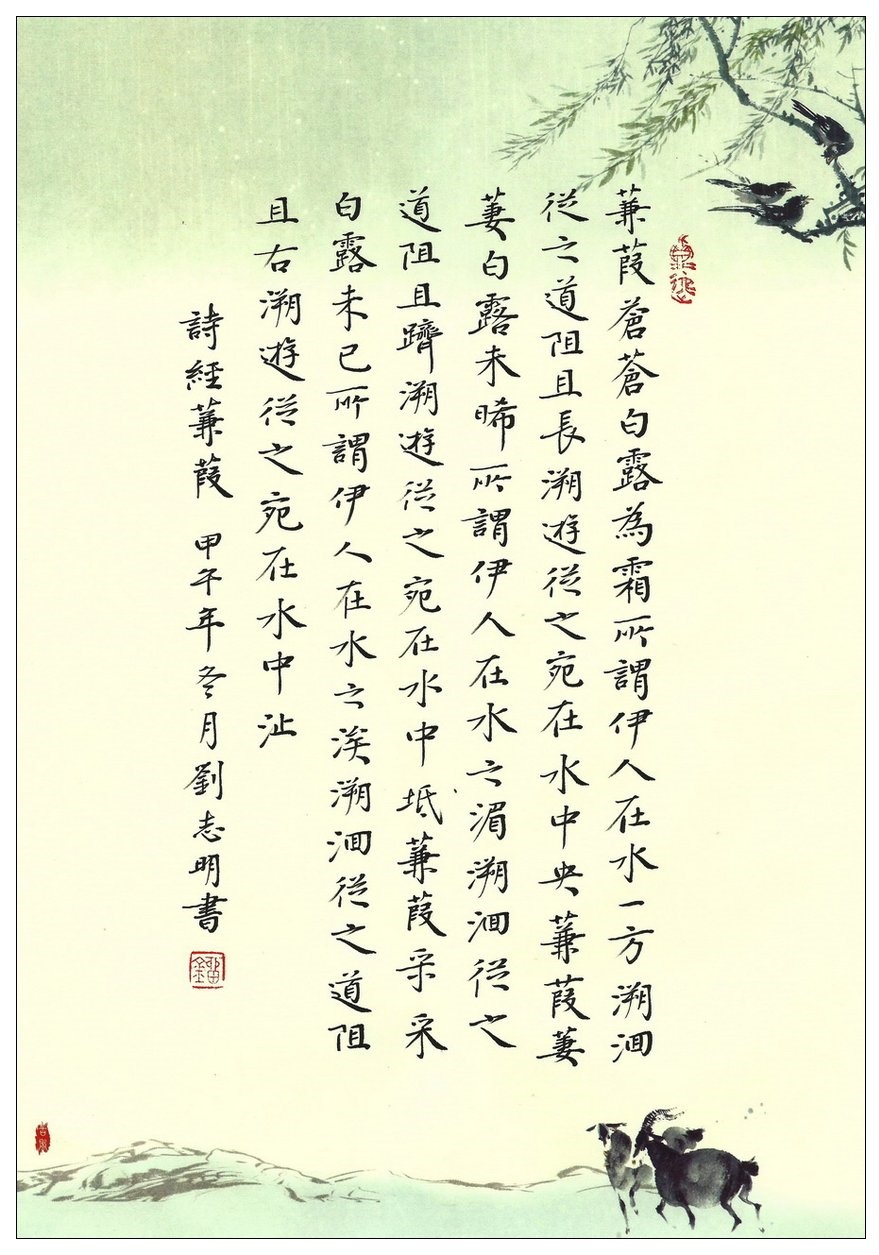 蒹葭蒼蒼白露為霜所謂伊人在水一方溯洄
從之道阻且長溯遊從之宛在水中央蒹葭萋
萋白露未晞所謂伊人在水之湄溯洄從之
道阻且躋溯遊從之宛在水中坻蒹葭采采
白露未已所謂伊人在水之涘溯洄從之道阻
且右溯遊從之宛在水中沚
詩經蒹葭 甲午年冬月劉志明書